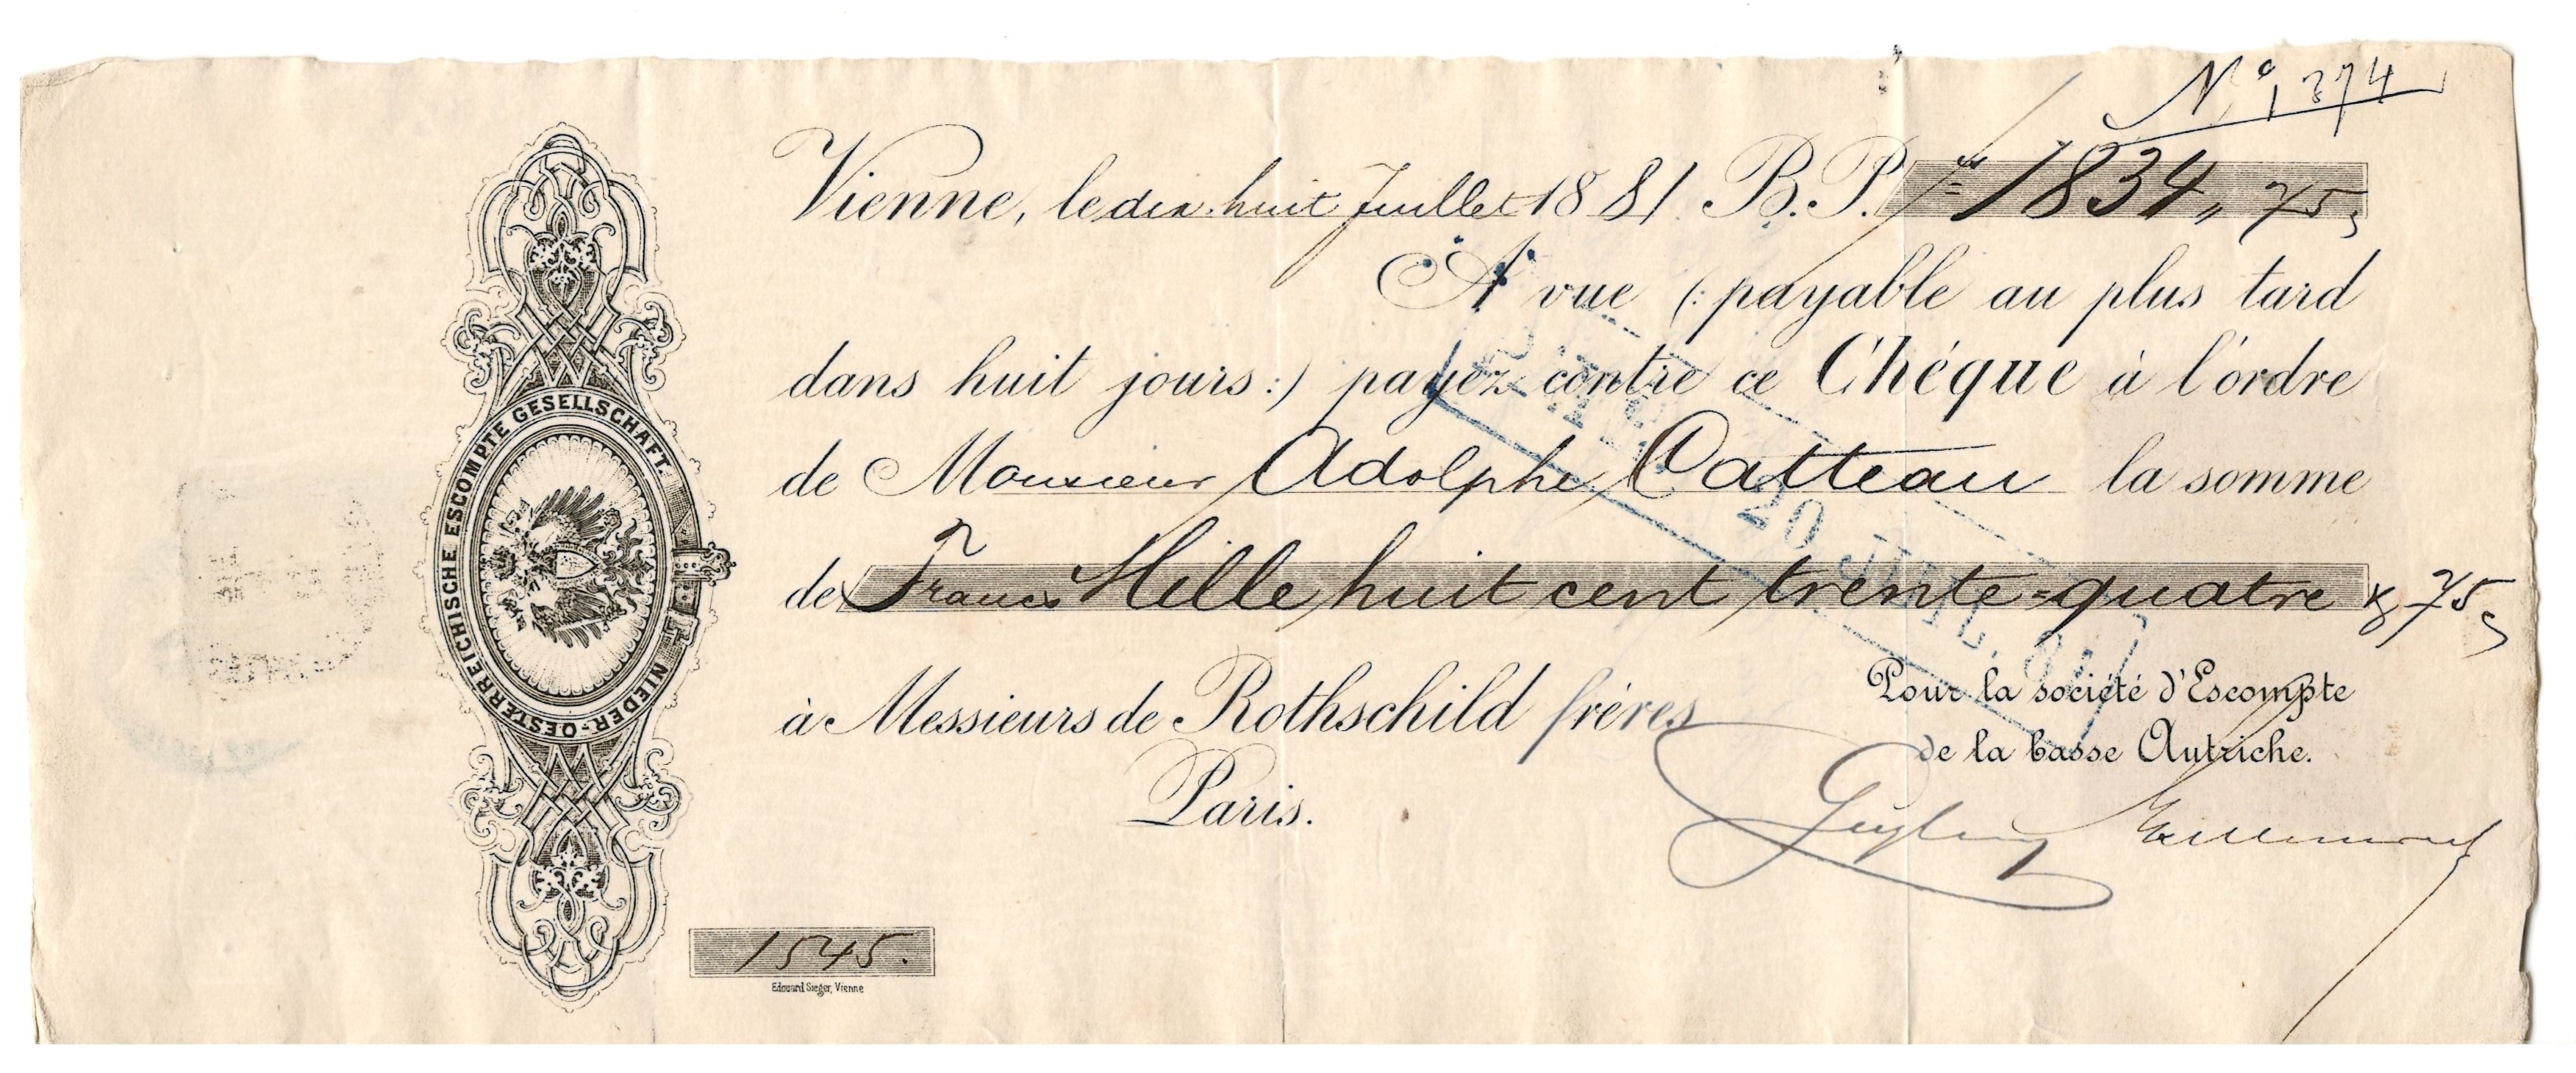 Nº 1374
Vienne, le dix-huit Juillet 1881. B. P. 1834,, 75
A vue (: payable au plus tard
dans huit jours :) payez contre ce Chéque à l'ordre
de Monsieur Adolphe Catteau la somme
de Francs Mille huit cent trente-quatre & 75
à Messieurs de Rothschild fréres
Paris.
Pour la société d'Escompte
de la basse Autriche.
NIEDER-OESTERREICHISCHE ESCOMPTE GESELLSCHAFT.
20 JUIL. 81
1545.
Edouard Sieger, Vienne